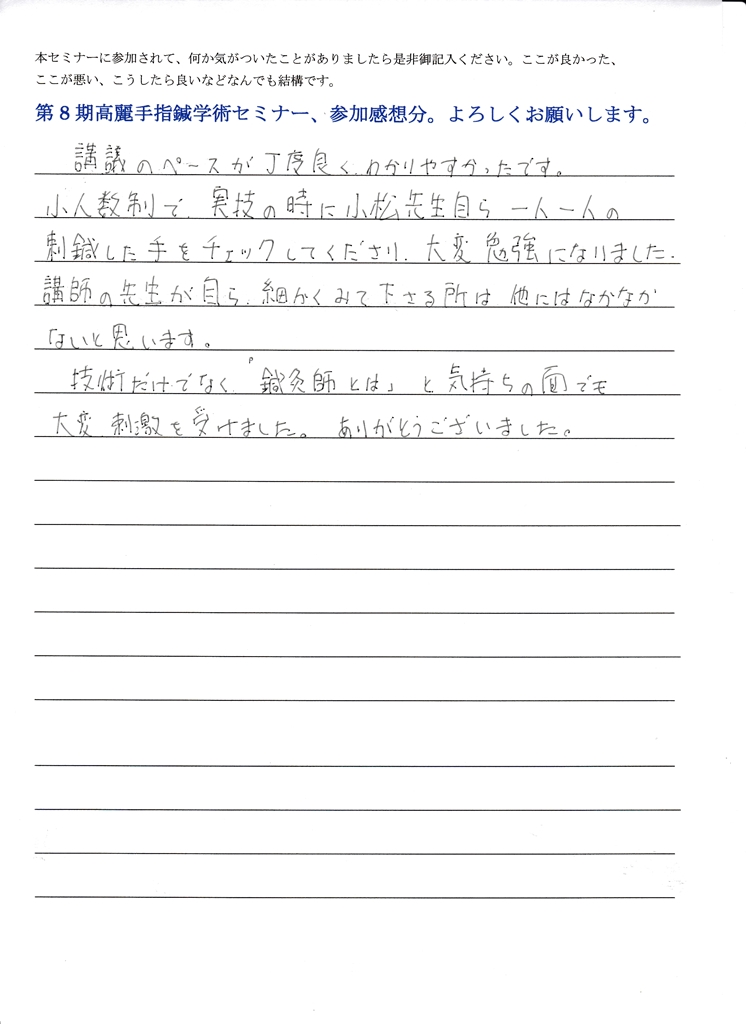 本セミナーに参加されて、何か気がついたことがありましたら是非御記入ください。ここが良かった、
ここが悪い、こうしたら良いなどなんでも結構です。
第8期高麗手指鍼学術セミナー、参加感想分。よろしくお願いします。
講議のペースが丁度良く、わかりやすかったです。
小人数制で、実技の時に小松先生自ら一人一人の
刺鍼した手をチェックしてくださり、大変勉強になりました。
講師の先生が自ら、細かくみて下さる所は他にはなかなか
ないと思います。
技術だけでなく、「鍼灸師とは」と気持ちの面でも
大変、刺激を受けました。ありがとうございました。